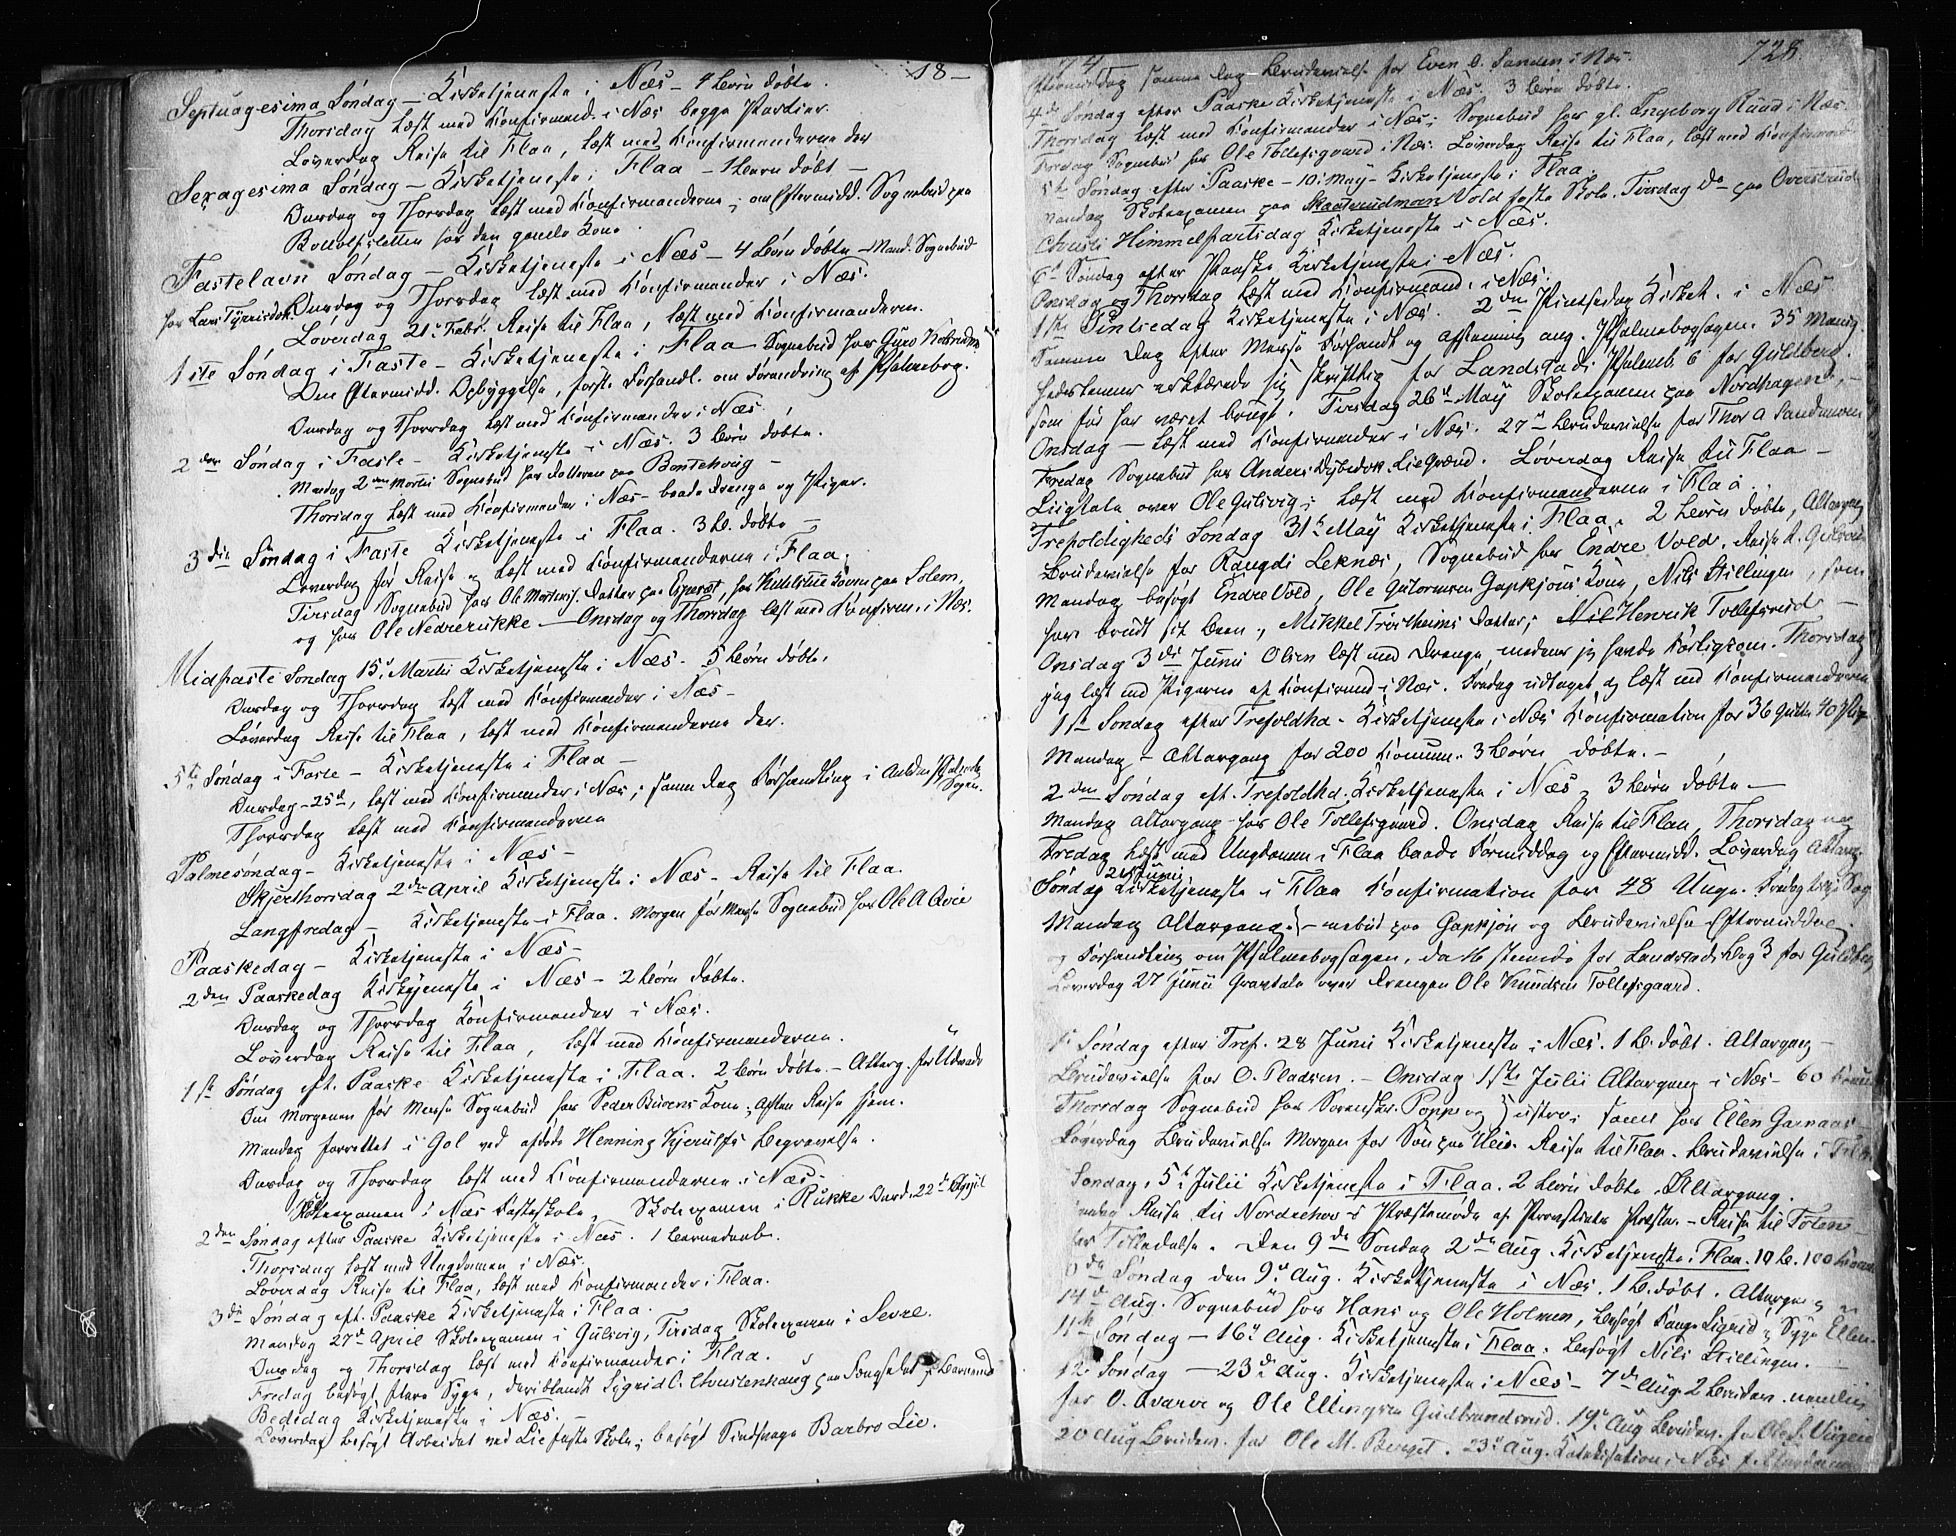 18-
Septuagesima Søndag - Kirketjeneste i Næs - 4 Børn døbte.
Thorsdag læst med Konfirmand. i Næs begge Partier.
Løverdag Reise til Flaa, læst med Konfirmanderne der
Sexagesima Søndag - Kirketjeneste i Flaa - 1 Barn døbt -
Onsdag og Thorsdag læst med Konfirmanderne, om Eftermidd. Sognebud paa
for den gamle Kone.
Fastelavn Søndag - Kirketjeneste i Næs - 4 Børn døbte - Mand. Sognebud
for Lars Onsdag og Thorsdag læst med Konfirmander i Næs.
Løverdag 21. Febr. Reise til Flaa, læst med Konfirmanderne.
1ste Søndag i Faste - Kirketjeneste i Flaa - Sognebud hos Guro
Den Eftermidd. Opbyggelse, første Forhandl. om Forandring af Psalmebog.
Onsdag og Thorsdag læst med Konfirmander i Næs.
2den Søndag i Faste - Kirketjeneste i Næs. 3 Børn døbte.
Mandag 2den Martii Sognebud hos Datteren paa
Thorsdag læst med Konfirmander i Næs - baade Drenge og Piger.
3die Søndag i Faste Kirketjeneste i Flaa. 3 B. døbte -
Løverdag før Reise og læst med Konfirmanderne i Flaa.
Tirsdag Sognebud hos Ole Datter paa Espeset, hos paa Solem,
og hos Ole Nedrerukke - Onsdag og Thorsdag læst med Konfirm. i Næs.
Midfaste Søndag 15. Martii Kirketjeneste i Næs. 5 Børn døbte.
Onsdag og Thorsdag læst med Konfirmander i Næs -
Løverdag Reise til Flaa, læst med Konfirmanderne der.
5te Søndag i Faste - Kirketjeneste i Flaa -
Onsdag - 25de, læst med Konfirmander i Næs; samme Dag Forhandling i Psalmebog
Sagen.
Thorsdag læst med Konfirmanderne
Palmesøndag - Kirketjeneste i Næs -
Skjerthorsdag 2den April Kirketjeneste i Næs - Reise til Flaa.
Langfredag - Kirketjeneste i Flaa. Morgen før Messe Sognebud hos Ole A.
Paaskedag - Kirketjeneste i Næs -
2den Paaskedag Kirketjeneste i Næs - 2 Børn døbte.
Onsdag og Thorsdag Konfirmander i Næs.
Løverdag Reise til Flaa, læst med Konfirmanderne.
1ste Søndag eft. Paaske Kirketjeneste i Flaa. 2 Børn døbte - Altarg. for
Om Morgenen før Messe Sognebud hos Peder Kone; Aften Reise hjem.
Mandag forrettet i Gol ved afdøde Henning Kjerulfs Begravelse.
Onsdag og Thorsdag læst med Konfirmanderne i Næs -
Skoleexamen i Næs Fasteskole. Skoleexamen i Rukke Onsd. 22de April
2den Søndag efter Paaske Kirketjeneste i Næs. 1 Barnedaab.
Thorsdag læst med Ungdommen i Næs.
Løverdag Reise til Flaa, læst med Konfirmander i Flaa.
3die Søndag eft. Paaske Kirketjeneste i Flaa.
Mandag 27de April Skoleexamen i Gulsvig, Tirsdag Skoleexamen i Sevre.
Onsdag og Thorsdag læst med Konfirmander i Flaa.
Fredag besøgt flere Syge, deriblandt Sigrid paa
Bededag Kirketjeneste i Næs. -
Løverdag besøgt Arbeidet ved Lie faste Skole; besøgt Sindssvage Barbro Lie.
728.
Eftermiddag samme Dag Brudevielse for Even O. Sanden i Næs.
4de Søndag efter Paaske Kirketjeneste i Næs. 3 Børn døbte.
Thorsdag læst med Konfirmander i Næs; Sognebud hos gl. Ingeborg Ruud i Næs
Fredag Sognebud hos Ole Tollefsgaard i Næs. Løverdag Reise til Flaa, læst med Konfirmand
5te Søndag efter Paaske - 10 May - Kirketjeneste i Flaa.
Mandag Skoleexamen paa Vold faste Skole. Tirsdag do paa
Christi Himmelfartsdag Kirketjeneste i Næs.
6te Søndag efter Paaske Kirketjeneste i Næs.
Onsdag og Thorsdag læst med Konfirmand. i Næs.
1ste Pintsedag Kirketjeneste i Næs. 2den Pintsedag Kirket. i Næs
Samme Dag efter Messe Forhandl. og Afstemning ang. Psalmebogsagen. 35 Menig-
hedslemmer erklærede sig skriftlig for Landstads Psalmb. 6 for Guldberg
som før har været brugt. Tirsdag 26de May Skoleexamen paa Nordhagen -
Onsdag - læst med Konfirmander i Næs. 27de Brudevielse for Thor A Sandemoen
Fredag Sognebud hos Anders Løverdag Reise til Flaa -
Liigtale over Ole Gulsvig; læst med Konfirmanderne i Flaa.
Trefoldigheds Søndag 31te May Kirketjeneste i Flaa. 2 Børn døbte, Altergang
Brudevielse for Rangdi Leknæs, Sognebud hos Endre Vold. Reise t. Gulsvig
Mandag besøgt Endre Vold, Ole Guttormsen Gapkjøns Kone, Nils Stillingen, som
have brudt sit Been, Mikkel Trøstheims Datter; Henrik Tollefsrud -
Onsdag 3die Junii Olsen læst med Drenge, medens jeg havde Thorsdag
jeg læst med Pigerne af Konfirmand. i Næs. Fredag udtaget og læst med Konfirmanderne
1ste Søndag efter Trefoldhd. Kirketjeneste i Næs Konfirmation for 36 Gutter 40 Pig.
Mandag - Altergang for 200 Kommun. 3 Børn døbte. -
2den Søndag eft. Trefoldhd. Kirketjeneste i Næs, 3 Børn døbte -
Mandag Altergang hos Ole Tollefsgaard. Onsdag Reise til Flaa, Thorsdag og
Fredag læst med Ungdommen i Flaa baade Formiddag og Eftermidd. Løverdag
21 Junii
Søndag Kirketjeneste i Flaa Konfirmation for 48 Unge.
Mandag Altergang - paa Gapkjøn og Brudevielse Eftermiddag
og Forhandling om Psalmebogsagen, da 16 stemmede for Landstads Bog 3 for Guldberg
Løverdag 27 Junii Gravtale over Drengen Ole Knudsen Tollefsgaard.
Søndag efter Tref. 28 Junii Kirketjeneste i Næs. 1 B. døbt. Altergang -
Brudevielse for O. Pladsen. - Onsdag 1ste Julii Altergang i Næs - 60
Thorsdag Sognebud hos Sorenskr. Poppe og Hustro; samt hos Ellen Garnaas
Løverdag Brudevielse Morgen for Reise til Flaa. Brudevielse i
Søndag, 5te Julii Kirketjeneste i Flaa. 2 Børn døbte. Altergang.
Reise til Norderhov Præstemøde af Provstiets Præster - Reise til Toten
Tilladelse. Den 9de Søndag 2den Aug. Kirketjeneste i Flaa. 1 B. 100
Søndag den 9de Aug. Kirketjeneste i Næs. 1 B. døbt. Altergang
14de Aug. Sognebud hos Hans og Ole Holmen, besøgt Sigrid
11te Søndag - 16de Aug. Kirketjeneste i Flaa. besøgt Nils Stillingen.
12. Søndag - 23de Aug. Kirketjeneste i Næs - 7de Aug 2 Brudev. nemlig
for O. og Ole Ellingsen Gulbrandsrud. 19de Aug Brudev. for Ole
20 Aug Brudev. for Ole M. Berget. 23de Aug. Katekisation i Næs